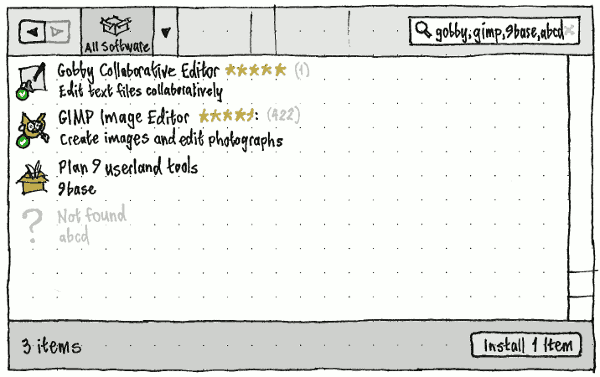 All Software
gobby,gimp,9base,abcd
Gobby Collaborative Editor (1)
Edit text files collaboratively
GIMP Image Editor : (422)
Create images and edit photographs
Plan 9 userland tools
9base
? Not found
abcd
3 items
Install 1 Item